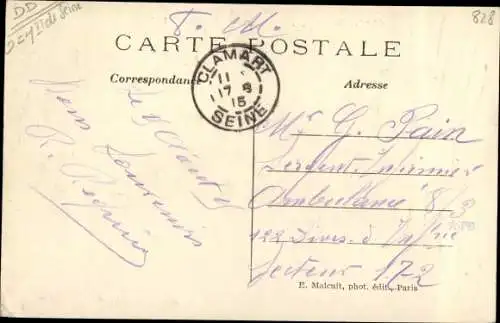 DD
828
F. M.
CARTE POSTALE
Correspondance
Adresse
CLAMART
11
17 8
15
SEINE
Bons Souvenirs
Mr G. Pain
Sergent Infirmier
Ambulance 8/3
122 Divis. d'Inf
Secteur 172
E. Malcuit, phot. édit., Paris